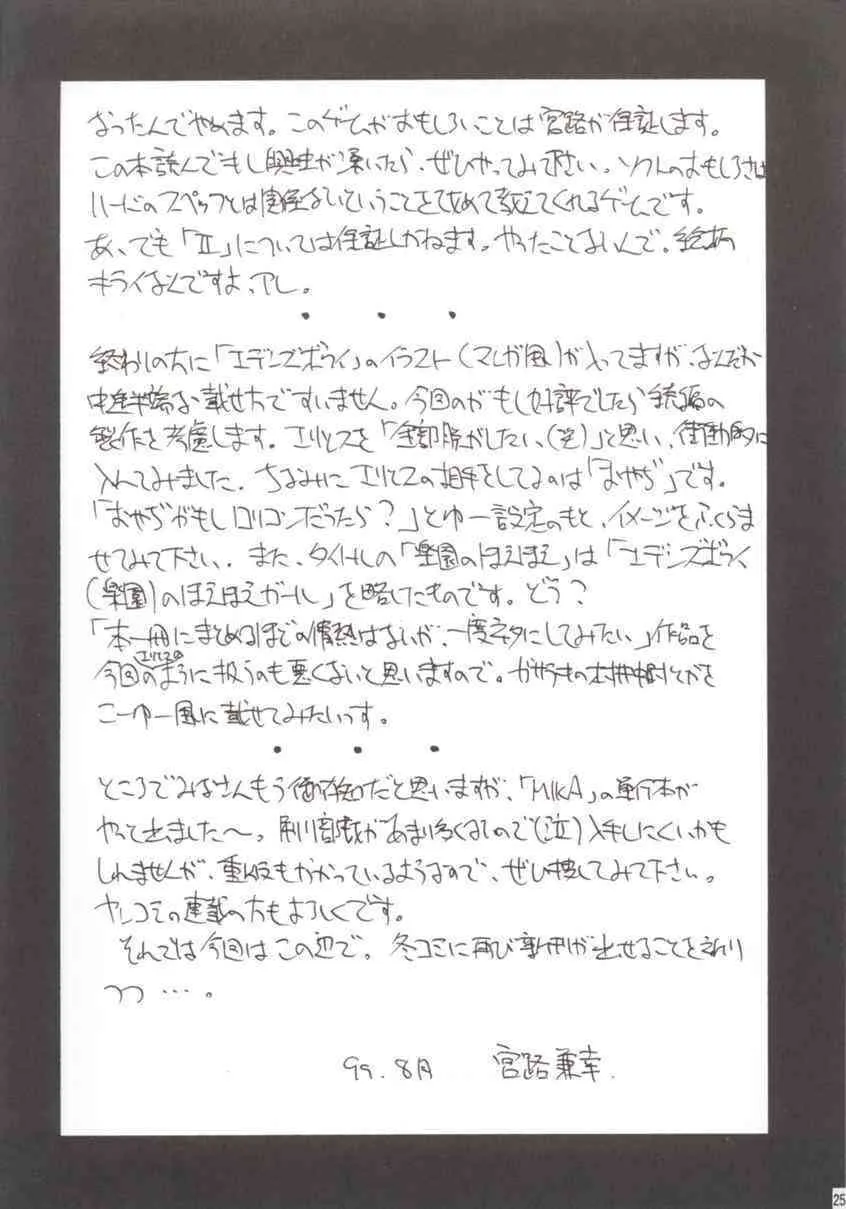 なったんでやめます。このゲームがおもしろいことは宮路が保証します。
この本読んでもし興味が湧いたら、ぜひやってみて下さい。ソフトのおもしろさは
ハードのスペックとは関係ないということを改めて教えてくれるゲームです。
あ、でも「Ⅱ」については保証しかねます。やったことないんで。絵柄
キライなんですよ、アレ。
・・・
終わりの方に「エデンズボゥイ」のイラスト(マンガ風)が入ってますが、なんだか
中途半端な載せ方ですいません。今回のがもし好評でしたら続編の
製作を考慮します。エリスを「全部脱がしたい(笑)」と思い、衝動的に
入れてみました。ちなみにエリスの相手をしてるのは「おやぢ」です。
「おやぢがもしロリコンだったら?」とゆー設定のもと、イメージをふくらま
せてみて下さい。また、タイトルの「楽園のほえほえ」は「エデンズボゥイ
(楽園)のほえほえガール」を略したものです。どう?
「本一冊にまとめるほどの情熱はないが、一度ネタにしてみたい」作品を
今回のエリスのように扱うのも悪くないと思いますので。
こーゆー風に載せてみたいっす。
・・・
ところでみなさんもう御存知だと思いますが、「MIKA」の単行本が
やっと出ました〜。刷部数があまり多くないので(泣)入手しにくいかも
しれませんが、重版もかかっているようなので、ぜひ捜してみて下さい。
ヤンコミの連載の方もよろしくです。
それでは今回はこの辺で。冬コミに再び新刊が出せることを祈り
つつ…。
99.8月 宮路兼幸.
25